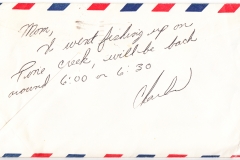 Mom,
I went fishing up on
Pine creek, will be back
around 6:00 or 6:30
Charlie